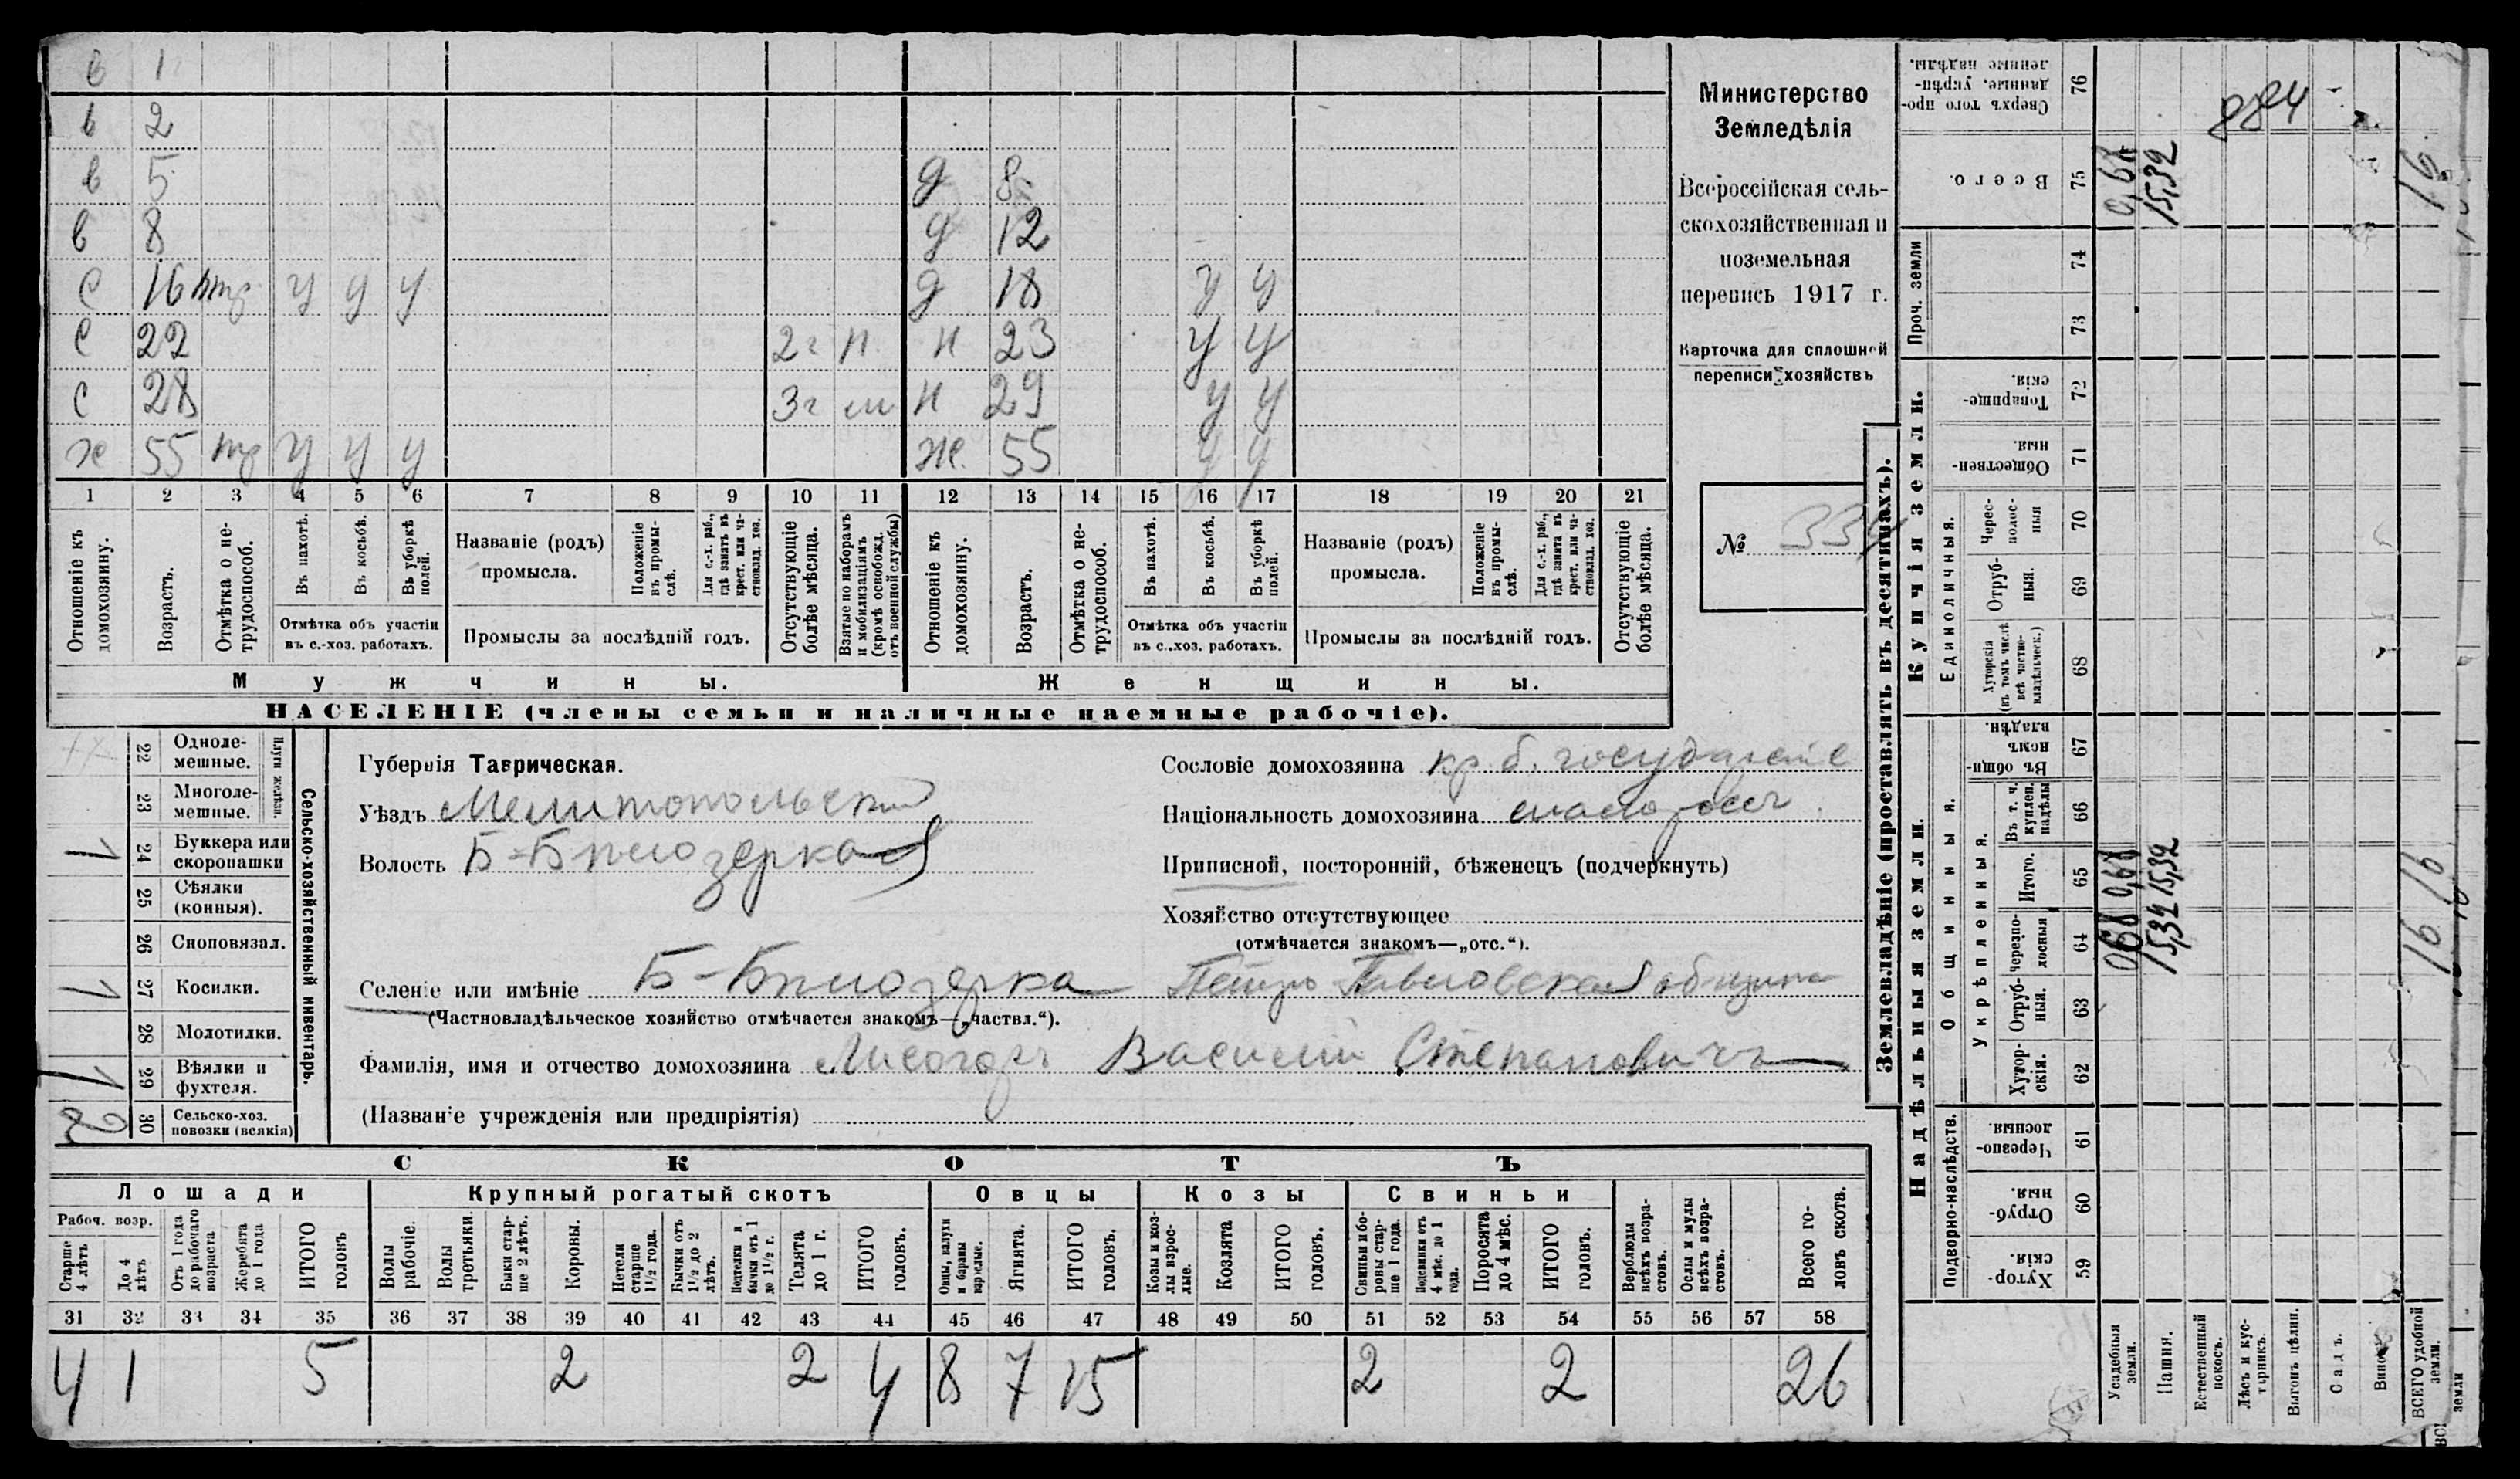 в 1
в 2
в 5 д 8
в 8 д 12
с 16 у у у д 18 у у
с 22 2 г п. н 23 у у
с 28 3 г н 29 у у
х 55 у у у ж. 55 у у
1 2 3 4 5 6 7 8 9 10 11 12 13 14 15 16 17 18 19 20 21
Отношеніе къ домохозяину.
Возрастъ.
Отмѣтка о не-
трудоспособ.
Въ пахотѣ.
Въ косьбѣ.
Въ уборкѣ
полей.
Отмѣтка объ участіи
въ с.-хоз. работахъ.
Названіе (родъ)
промысла.
Положеніе
въ промы-
слѣ.
Для с.-х. раб.,
гдѣ занятъ въ
крест. или ча-
стновлад. хоз.
Промыслы за послѣдній годъ.
Отсутствующіе
болѣе мѣсяца.
Взятые по наборамъ
и мобилизаціямъ
(кромѣ освобожд.
отъ военной службы)
Отношеніе къ
домохозяину.
Возрастъ.
Отмѣтка о не-
трудоспособ.
Въ пахотѣ.
Въ косьбѣ.
Въ уборкѣ
полей.
Отмѣтка объ участіи
въ с.-хоз. работахъ.
Названіе (родъ)
промысла.
Положеніе
въ промы-
слѣ.
Для с.-х. раб.,
гдѣ занята въ
крест. или ча-
стновлад. хоз.
Промыслы за послѣдній годъ.
Отсутствующіе
болѣе мѣсяца.
Мужчины.
Женщины.
НАСЕЛЕНІЕ (члены семьи и наличные наемные рабочіе).
Министерство
Земледѣлія
Всероссійская сель-
скохозяйственная и
поземельная
перепись 1917 г.
Карточка для сплошной
переписи хозяйствъ
№ 334
Сельско-хозяйственный инвентарь.
Плуги желѣзн.
22 Одноле-
мешные.
23 Многоле-
мешные.
1 24 Буккера или
скоропашки
25 Сѣялки
(конныя).
26 Сноповязал.
1 27 Косилки.
28 Молотилки.
1 29 Вѣялки и
фухтеля.
2 30 Сельско-хоз.
повозки (всякія)
Губернія Таврическая.
Уѣздъ Мелитопольскій
Волость Б-Бѣлозерская
Селеніе или имѣніе Б-Бѣлозерка Петро Павловская община
(Частновладѣльческое хозяйство отмѣчается знакомъ—„частвл.“).
Фамилія, имя и отчество домохозяина Лисогоръ Василій Степановичъ
(Названіе учрежденія или предпріятія)
Сословіе домохозяина кр. б. государстве
Національность домохозяина малоросс
Приписной, посторонній, бѣженецъ (подчеркнуть)
Хозяйство отсутствующее
(отмѣчается знакомъ—„отс.“).
СКОТЪ
Лошади
Крупный рогатый скотъ
Овцы
Козы
Свиньи
Рабоч. возр.
Старше
4 лѣтъ
До 4
лѣтъ
Отъ 1 года
до рабочаго
возраста
Жеребята
до 1 года
ИТОГО
головъ
Волы
рабочіе.
Волы
третьяки.
Быки стар-
ше 2 лѣтъ.
Коровы.
Нетели
старше
1½ года.
Бычки отъ
1½ до 2
лѣтъ.
Подтелки и
бычки отъ 1
до 1½ г.
Телята
до 1 г.
ИТОГО
головъ.
Овцы, валухи
и бараны
взрослые.
Ягнята.
ИТОГО
головъ.
Козы и коз-
лы взрос-
лые.
Козлята
ИТОГО
головъ.
Свиньи и бо-
ровы стар-
ше 1 года.
Подсвинки отъ
4 мѣс. до 1
года.
Поросята
до 4 мѣс.
ИТОГО
головъ.
Верблюды
всѣхъ возра-
стовъ.
Ослы и мулы
всѣхъ возра-
стовъ.
Всего го-
ловъ скота.
31 32 33 34 35 36 37 38 39 40 41 42 43 44 45 46 47 48 49 50 51 52 53 54 55 56 57 58
4 1 5 2 2 4 8 7 15 2 2 26
Землевладѣніе (проставлять въ десятинахъ).
Купчія земли.
Надѣльныя земли.
Проч. земли
Единоличныя.
Общинныя.
Укрѣпленныя.
Подворно-наслѣдств.
Сверхъ того про-
данные, укрѣп-
ленные надѣлы. 76
Всего. 75
74
73
Товарище-
скія. 72
Обществен-
ныя. 71
Черес-
полос-
ныя 70
Отруб-
ныя. 69
Хуторскія
(въ томъ числѣ
всѣ частно-
владѣльческ.) 68
Въ общи-
номъ
владѣн. 67
Въ т. ч.
куплен.
надѣлы 66
Итого. 65
Черезпо-
лосныя 64
Отруб-
ныя. 63
Хутор-
скія. 62
Черезпо-
лосныя. 61
Отруб-
ныя. 60
Хутор-
скія. 59
884
0,68
15,32
16
0,68 0,68
15,32 15,32
16 16
Усадебныя
земли.
Пашня.
Естественный
покосъ.
Лѣсъ и кус-
тарникъ.
Выгонъ цѣлин.
Садъ.
ВСЕГО удобной
земли.
земли